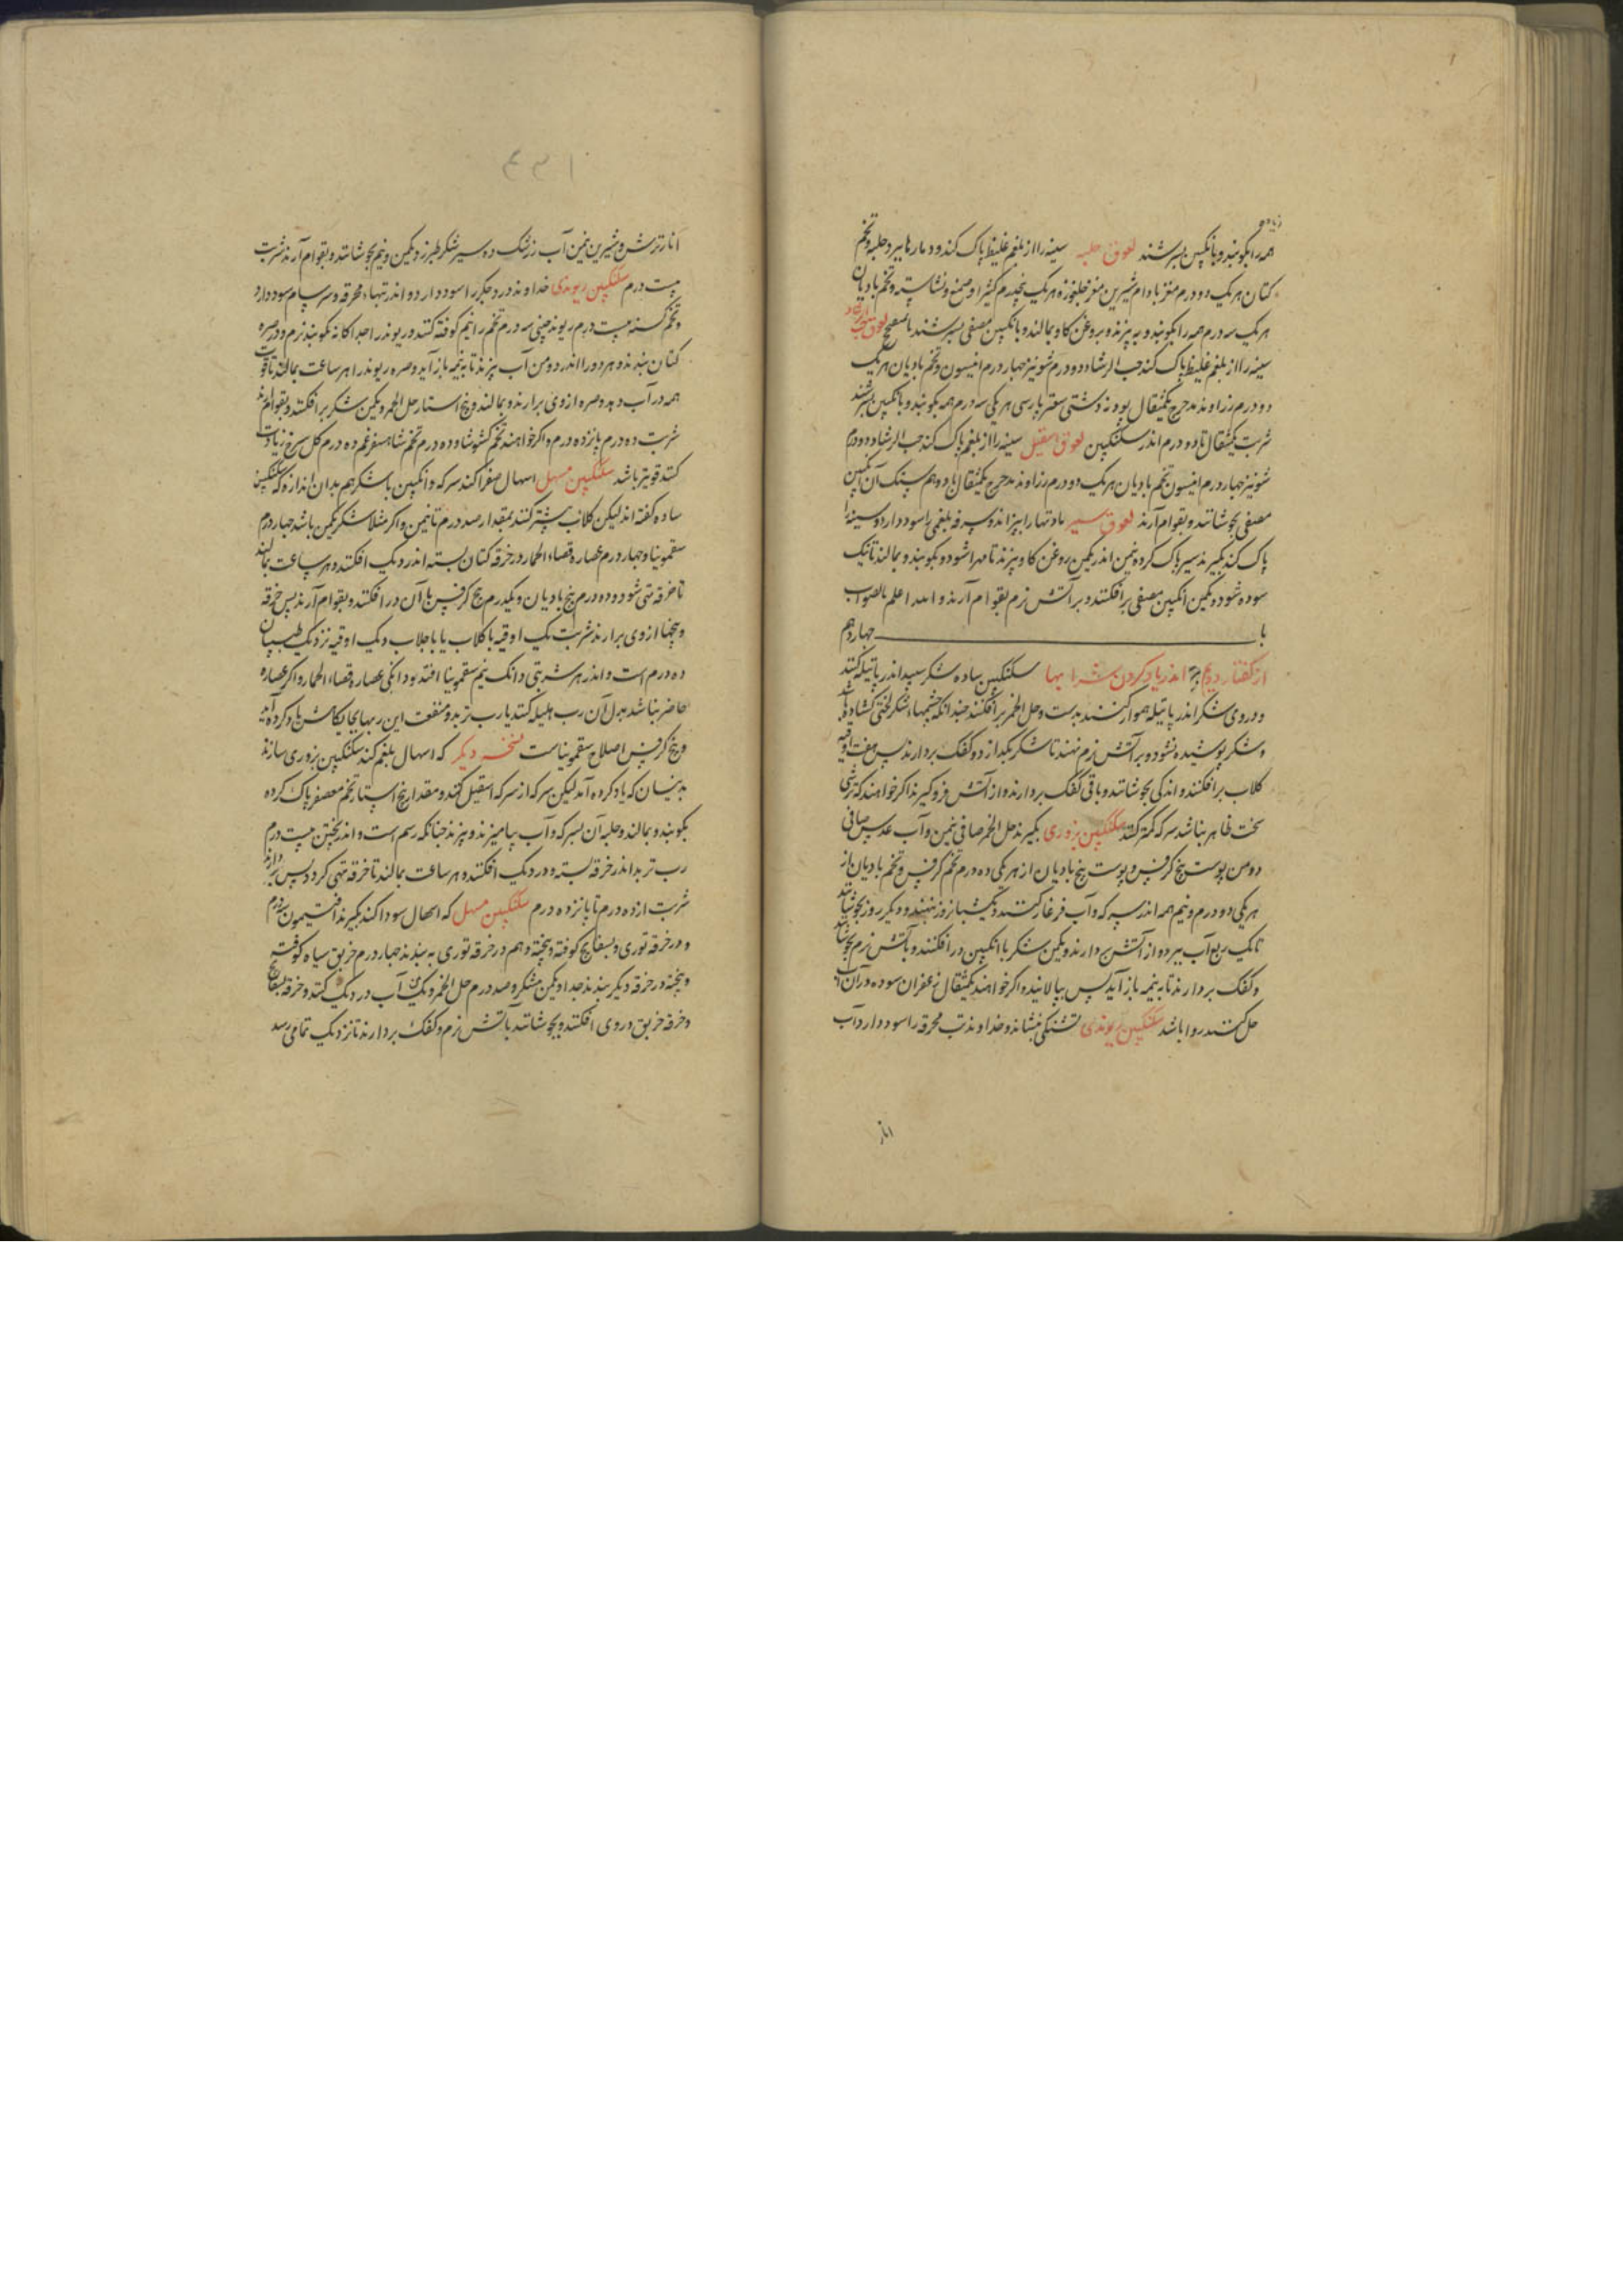 همه را بکوبند و بانکبین بسرشند لعوق حلبه سینه را از بلغم غلیظ پاک کند و دمار ها ببرد حلبه و تخم
کتان هر یک دو درم مغز بادام شیرین مغز جلغوزه هر یک پنجدرم کثیرا و صمغ و نشاسته و تخم بادیان
هر یک سه درم همه را بکوبند و به پزند و بروغن کاو بمالند و بانکبین مصفی بسرشند لعوق حب الرشاد
سینه را از بلغم غلیظ پاک کند حب الرشاد دو درم شونیز چهار درم انیسون و تخم بادیان هر یک
دو درم زراوند مدحرج یکمثقال پودنه دشتی سعتر پارسی هر یکی سه درم همه بکوبند و بانکبین بسرشند
شربت یکمثقال تا دو درم اندر سکنکبین لعوق اسقیل سینه را از بلغم پاک کند حب الرشاد دو درم
شونیز چهار درم انیسون تخم بادیان هر یک دو درم زراوند مدحرج یکمثقال با دو هم سنک آن انکبین
مصفی بجوشانند و بقوام آرند لعوق سیر بادتهار ابیزاند و سرفه بلغمی را سود دارد و سینه را
پاک کند بکیرند سیر پاک کرده نیمن اندر یکمن روغن کاو بپزند تا مهرا شود و بکوبند و بمالند تا نیک
سوده شود و یکمن انکبین مصفی برافکنند و بر آتش نرم بقوام آرند و الله اعلم بالصواب
با چهاردهم
از کفتار دویم اندر یاد کردن شرابها سکنکبین ساده شکر سپید اندر پاتیله کنند
و روی شکر اندر پاتیله هموار کنند بدست و خل الخمر برافکنند چندانکه چشمهاء شکر لختی کشاده
و شکر پوشیده نشود و بر آتش نرم نهند تا شکر بکدازد و کفک بردارند پس هفت اوقیه
کلاب برافکنند و اندکی بجوشانند و باقی کفک بردارند و از آتش فرو کیرند اکر خواهند که ترشی
سخت ظاهر نباشد سرکه کمتر کنند سکنکبین بزوری بکیرند خل الخمر صافی نیمن و آب عدس صافی
دو من پوست بیخ کرفس و پوست بیخ بادیان از هر یکی ده درم تخم کرفس و تخم بادیان از
هر یکی دو درم و نیم همه اندر سرکه و آب فرغار کنند و یکشبانروز بنهند و دیکر روز بجوشانند
تا یک ربع آب ببرد و از آتش بردارند و یکمن شکر یا انکبین در افکنند و بآتش نرم بجوشانند
و کفک بردارند تا به نیمه باز آید پس بپالایند و اکر خواهند یکمثقال زعفران سوده در آن
حل کنند روا باشد سکنکبین ریوندی تشنکی بنشاند و خداوند تب محرقه را سود دارد آب
انار
انار ترش و شیرین نیمن آب زرشک ده سیر شکر طبرزد یکمن و نیم بجوشانند و بقوام آرند شربت
بیست درم سکنکبین ریوندی خداوند درد جکر را سود دارد و اندر تبهاء محرقه و سرسام سود دارد
و تخم کسنه بیست درم ریوند چینی سه درم تخم را نیم کوفته کنند و ریوند را جداکانه بکوبند نرم و در صره
کتان بندند و هر دو را اندر دو من آب بپزند تا به نیمه باز آید و صره ریوند را هر ساعت بمالند تا قوت
همه در آب دهد و صره از وی برارند و بمالند و پنج استار خل الخمر و یکمن شکر برافکنند و بقوام آرند
شربت ده درم پانزده درم و اکر خواهند تخم کشوث و ده درم تخم شاهسفرغم ده درم کل سرخ زیادت
کنند قویتر باشد سکنکبین مسهل اسهال صفرا کند سرکه و انکبین یا شکر هم بدان اندازه که سکنکبین
ساده کفته اند لیکن کلاب بیشتر کنند بمقدار صد درم تا نیمن و اکر مثلا شکر یکمن باشد چهار درم
سقمونیا و چهار درم عصاره قصاء الحمار در خرقه کتان بسته اندر دیک افکنند و هر ساعت بمالند
تا خرقه تهی شود و ده درم بیخ بادیان و یکدرم بیخ کرفس با آن در افکنند و بقوام آرند پس خرقه
و بیخها از وی برارند شربت یک اوقیه با کلاب یا با جلاب و یک اوقیه نزدیک طبیبان
ده درم است و اندر هر شربتی دانک نیم سقمونیا افتد و دانکی عصاره قصاء الحمار و اکر عصاره
حاضر نباشد بدل آن رب هلیله کنند یا رب تربد و منفعت این ربها بجایکاهش یاد کرده آید
و بیخ کرفس اصلاح سقمونیاست نسخه دیکر که اسهال بلغم کند سکنکبین بزوری سازند
بدینسان که یاد کرده آمد لیکن سرکه از سرکه اسقیل کنند و مقدار پنج استار تخم معصفر پاک کرده
بکوبند و بمالند و جلبه آن بسرکه و آب بیامیزند و بپزند چنانکه رسم است و اندر پختن بیست درم
رب تربد اندر خرقه بسته و در دیک افکنند و هر ساعت بمالند تا خرقه تهی کردد پس برارند
شربت از ده درم تا پانزده درم سکنکبین مسهل که اسهال سودا کند بکیرند افتیمون درم
و در خرقه توری و بسفایج کوفته و بیخته و هم در خرقه توری به بندند چهار درم خربق سیاه کوفته
و بیخته در خرقه دیکر بندند جدا و یکمن شکر و صد درم خل الخمر و یک من آب در دیک کنند و خرقه بسفایج
و خرقه خربق در وی افکنند و بجوشانند بآتش نرم و کفک بردارند تا نزدیک تمامی رسد